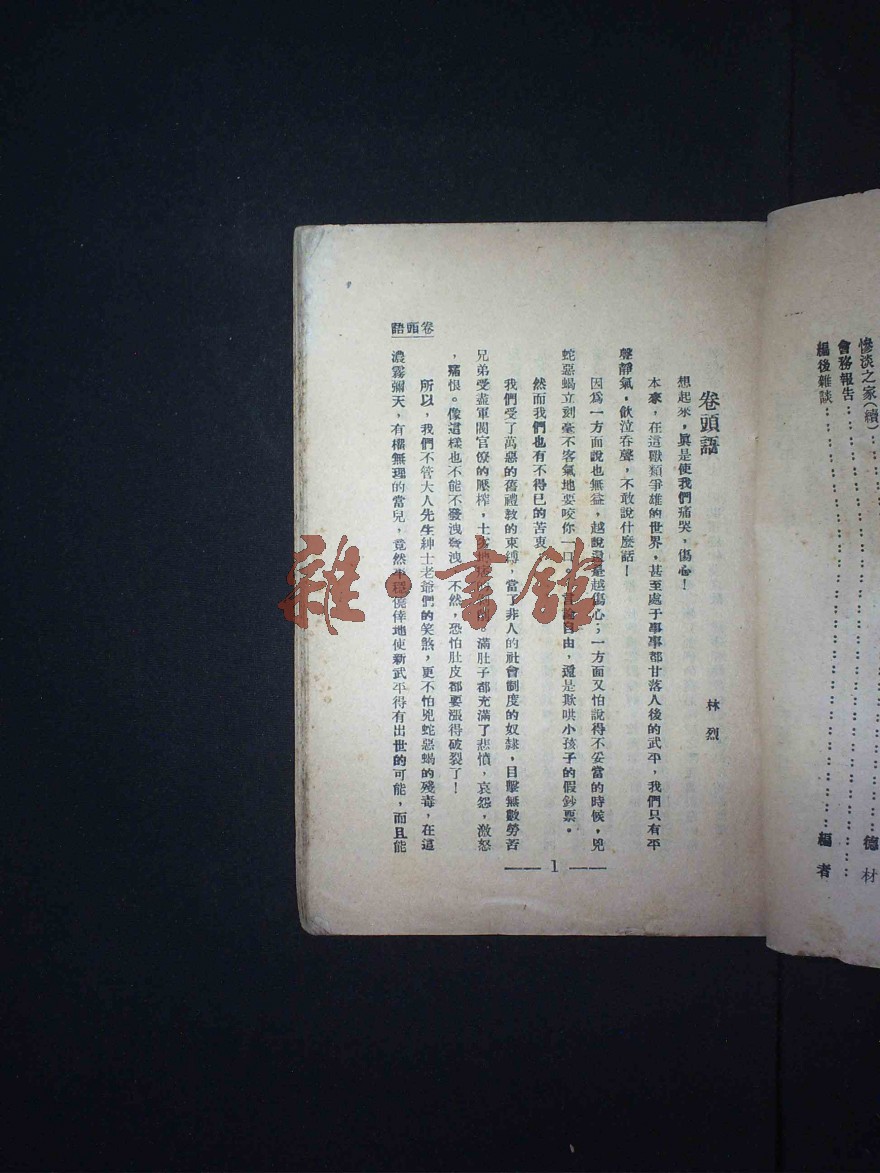 慘淡之家(續)……德材
會務報告……
編後雜談……編者
卷頭語
林烈
想起來，眞是使我們痛哭，傷心！
本來，在這獸類爭雄的世界，甚至處于事事都甘落人後的武平，我們只有平
聲靜氣，飲泣吞聲，不敢說什麼話！
因爲一方面說也無益，越說還是越傷心；一方面又怕說得不妥當的時候，兇
蛇惡蝎立刻毫不客氣地要咬你一口。言論自由，還是欺哄小孩子的假鈔票。
然而我們也有不得已的苦衷，
我們受了萬惡的舊禮敎的束縛，當了非人的社會制度的奴隸，目擊無數勞苦
兄弟受盡軍閥官僚的壓榨，土劣地痞。滿肚子都充滿了悲憤，哀怨，激怒
，痛恨。像這樣也不能不發洩發洩，不然，恐怕肚皮都要漲得破裂了！
所以，我們不管大人先生紳士老爺們的笑煞，更不怕兇蛇惡蝎的殘毒，在這
濃霧彌天，有權無理的當兒，竟然平穩僥倖地使新武平得有出世的可能，而且能
卷頭語
1
雜·書館